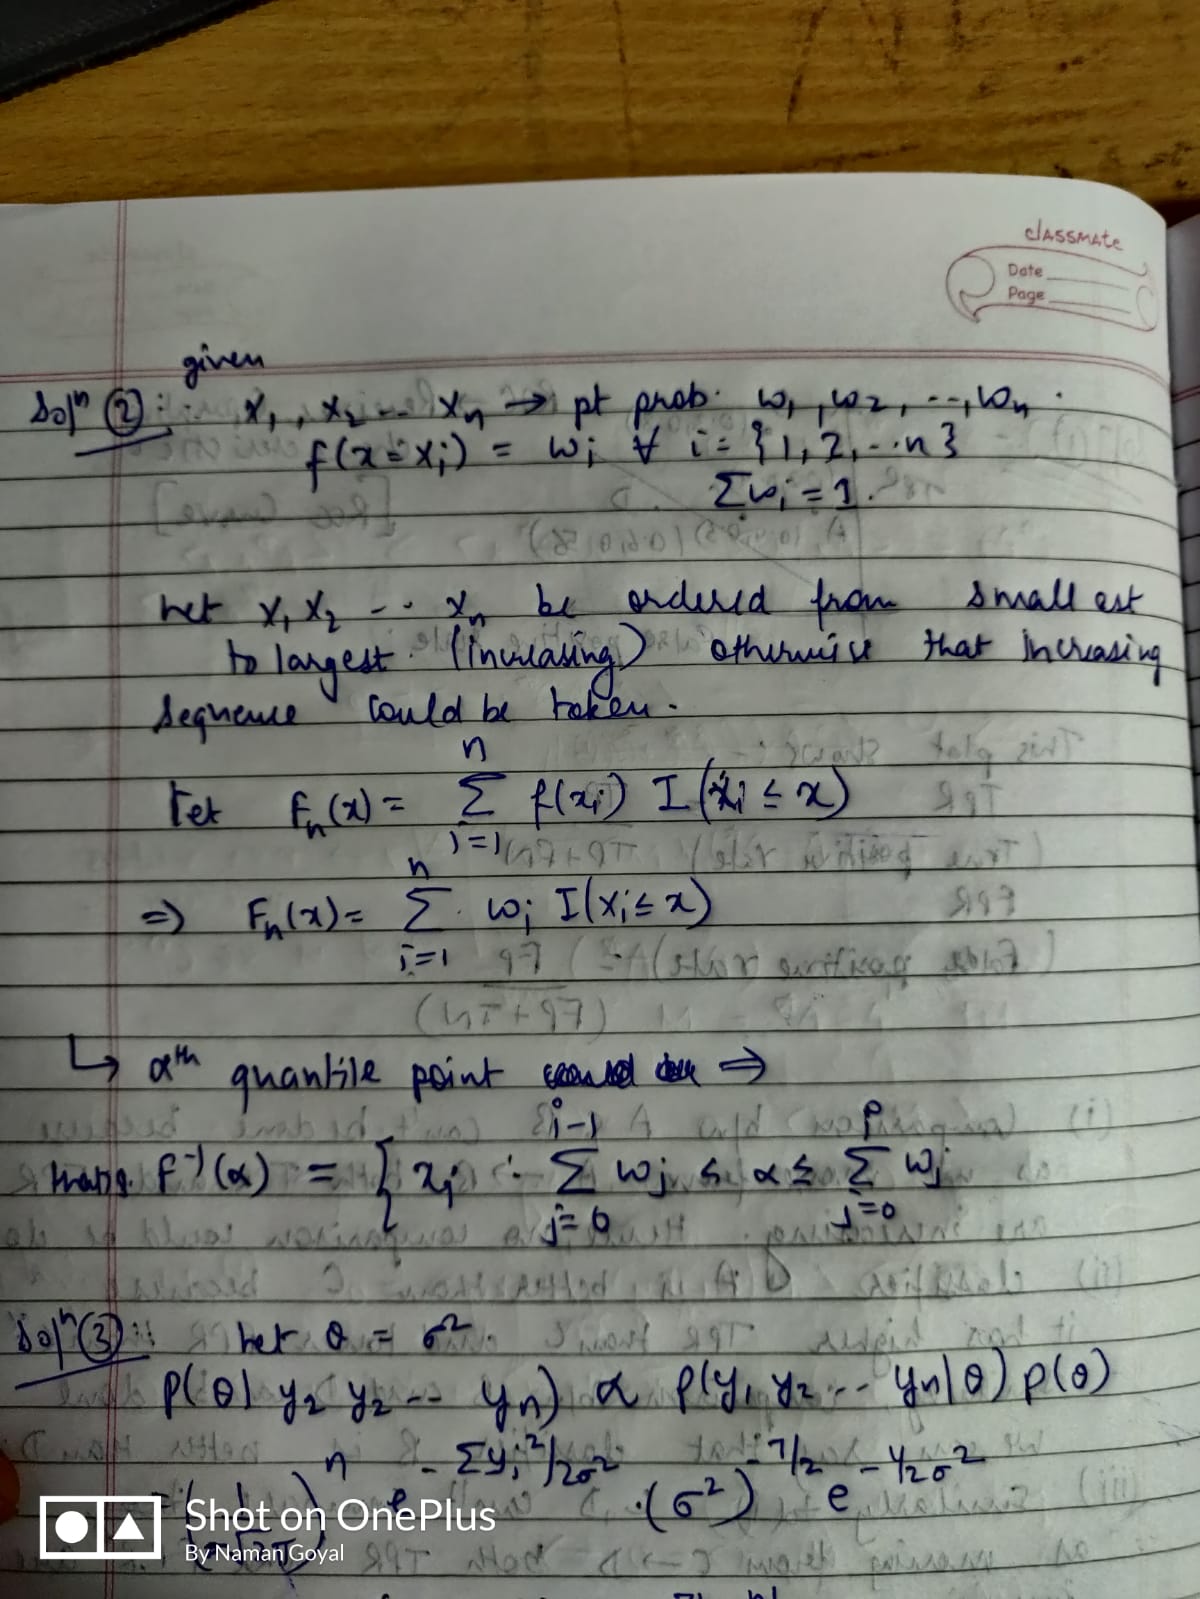 classmate
Date
Page
given
Solⁿ ②: X₁, X₂ -- Xₙ → pt prob. w₁, w₂, --, wₙ.
f(x = xᵢ) = wᵢ ∀ i = {1, 2, -- n}
Σwᵢ = 1.
Let X₁ X₂ -- Xₙ be ordered from smallest
to largest. (increasing) otherwise that increasing
sequence could be taken.
Let Fₙ(x) = Σ_{i=1}^{n} f(xᵢ) I(xᵢ ≤ x)
⇒ Fₙ(x) = Σ_{i=1}^{n} wᵢ I(Xᵢ ≤ x)
↳ αᵗʰ quantile point ⇒
F⁻¹(α) = { xᵢ : Σ_{j=0}^{i-1} wⱼ ≤ α ≤ Σ_{j=0}^{p} wⱼ
Solⁿ ③: Let θ = σ².
P(θ | y₂ y₂ -- yₙ) α P(y₁ y₂ -- yₙ | θ) p(θ)
ⁿ e^{-Σyᵢ²/2σ²} · (σ²)^{-7/2} e^{-1/2σ²}
Shot on OnePlus
By Naman Goyal